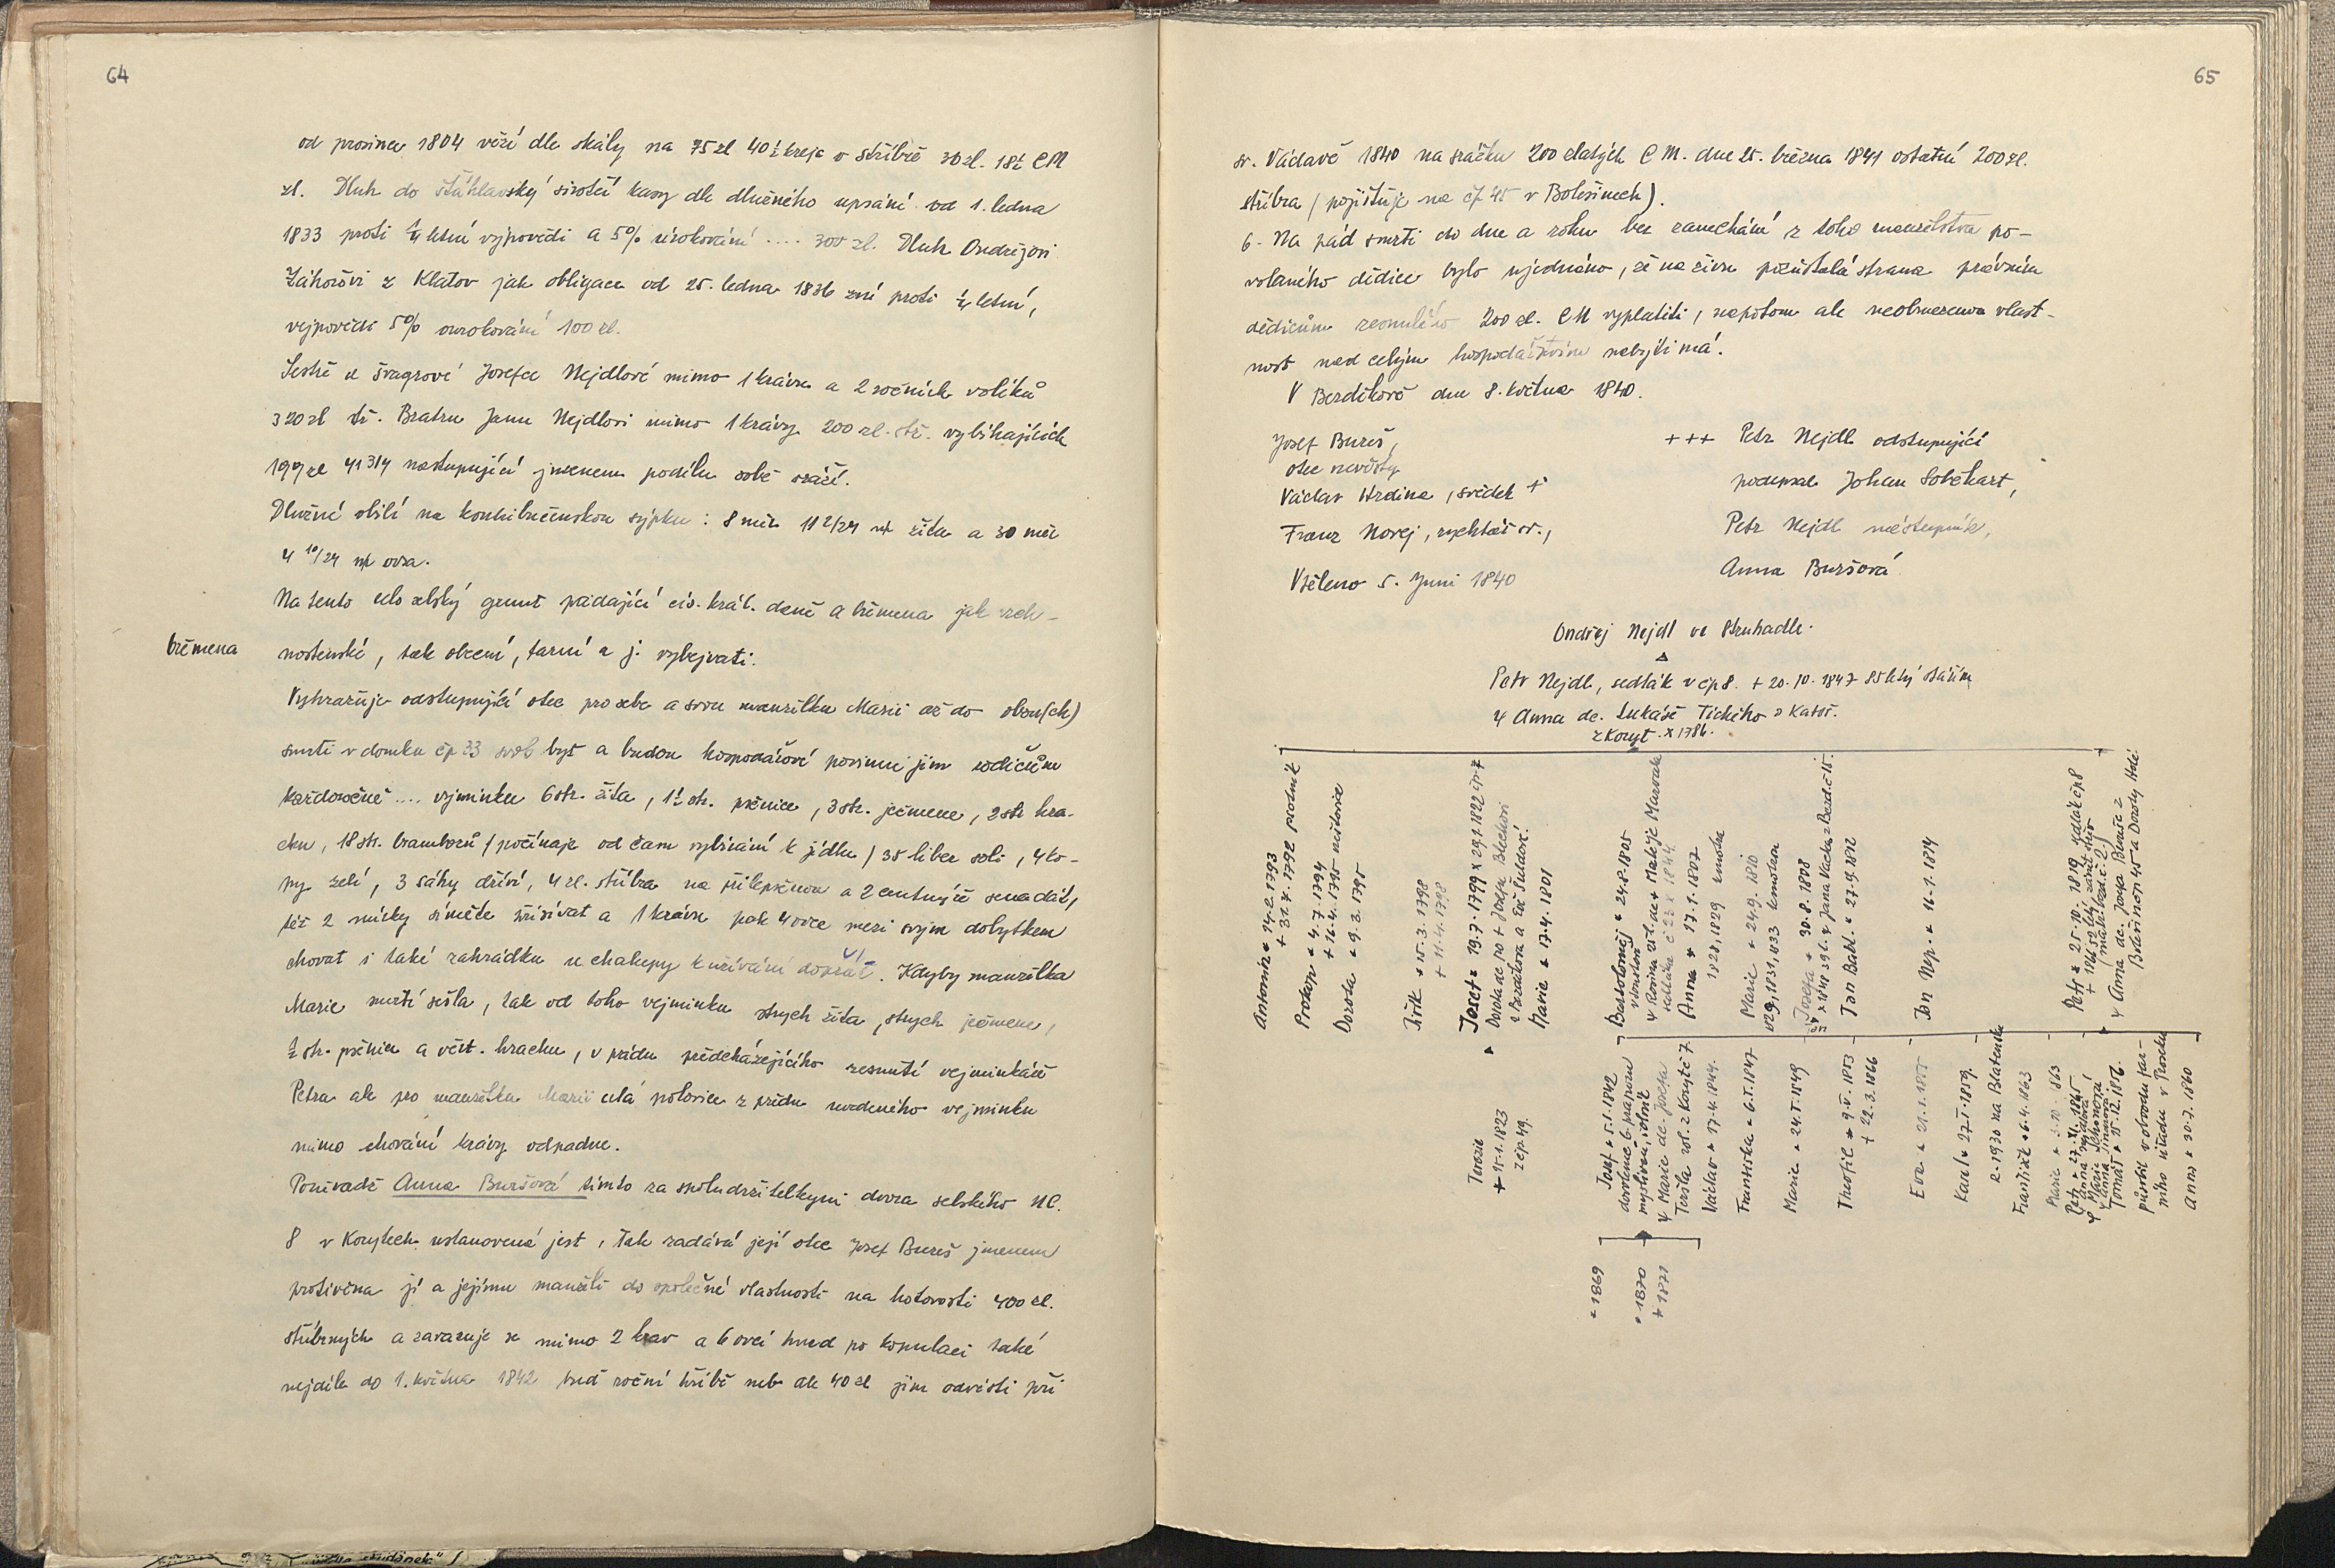 64
od prosince 1804 věží dle skály na 75 zl 40½ krejc v stříbře 30 zl. 18½ CM
zl. Dluh do šťáhlavský sirotčí kasy dle dlužného upsání od 1. ledna
1833 proti ¼ letní výpovědi a 5% úrokování .... 300 zl. Dluh Ondřejovi
Záhořovi z Klatov jak obligace od 25. ledna 1836 zní proti ¼ letní,
vejpovědi 5% ourokování 100 zl.
Sestře a švagrové Josefce Nejdlové mimo 1 krávu a 2 ročních volíků
320 zl stř. Bratru Janu Nejdlovi mimo 1 krávy 200 zl. stř. vybíhajících
199 zl 41 3/4 nastupující jmenem podílu sobě sráží.
Dlužné obilí na kontribučenskou sýpku: 8 měr. 11 2/24 žita a 30 měr
4 10/24 ovsa.
Na tento celo selský grunt padající cís. král. daně a břemena jak vrch-
břemena
nostenské, tak obecní, farní a j. vybejvati.
Vyhražuje odstupující otec pro sebe a svou manželku Marii až do obou(ch)
smrti v domku čp 33 svob byt a budou hospodářové povinni jim rodičům
každoročně .... vyminku 6 str. žita, 1½ str. pšenice, 3 str. ječmene, 2 str hra-
chu, 18 str. bramborů (počínaje od času vybírání k jídlu) 35 liber soli, 4 ko-
py zelí, 3 sáhy dříví, 4 zl. stříbra na přilepšenou a 2 centnýře sena dát,
též 2 měřky síměte vsívat a 1 krávu pak 4 ovce mezi svým dobytkem
chovat i také zahrádku u chalupy k užívání dopřát. Kdyby manželka
Marie smrtí sešla, tak od toho vejminku strych žita, strych ječmene,
½ str. pšenice a věrt. hrachu, v pádu předcházejícího zesnutí vejminkáře
Petra ale pro manželku Marii celá polovice z předu uvedeného vejminku
mimo chování krávy odpadne.
Poněvadž Anna Buršová tímto za spoludržitelkyni dvora selského NC.
8 v Korytech ustanovená jest, tak zadává její otec Josef Bureš jmenem
protivěna jí a jejímu manželi do společné vlastnosti na hotovosti 400 zl.
stříbrných a zavazuje se mimo 2 krav a 6 ovcí hned po kopulaci také
nejdíle do 1. května 1842 buď roční hříbě neb ale 40 zl jim odvésti při
65
sv. Václavě 1840 na srážku 200 zlatých CM. dne 25. března 1841 ostatní 200 zl.
stříbra (pojištuje na čp 45 v Bolešinech).
6. Na pád smrti do dne a roku bez zanechání z toho manželstva po-
volaného dědice bylo ujednáno, že na živu pozůstalá strana právním
dědicům zesnulého 200 zl. CM vyplatiti, napotom ale neobmezenou vlast-
nost nad celým hospodářstvím nabýti má.
V Bezděkově dne 8. května 1840.
Josef Bureš,
otec nevěsty
Václav Hrdina, svědek +
Franz Novej, rychtář sv.,
Vtěleno 5. Juni 1840
+++ Petr Nejdl odstupující
podepsal Johan Sobekart,
Petr Nejdl nástupník,
Anna Buršová
Ondřej Nejdl ve Struhadle.
Petr Nejdl, sedlák v čp 8. + 20.10.1847 85 letý stářím
Anna dc. Lukáše Tichého
z Koryt. x 1786.
Antonín * 14.2.1793
Prokop * 4.7.1794
+ 16.4.1795 neštovice
Dorota * 9.3.1795
Jiřík * 15.3.1798
+ 11.4.1798
Josef * 19.7.1799 x 29.1.1822 čp 7
Dorota dc po + Josefu Blechovi
Marie * 17.4.1801
Bartoloměj * 24.8.1805
Anna * 17.1.1807
1828, 1829
Marie * 24.9.1810
Josefa * 30.8.1808
Jan Babt. * 27.9.1812
Jan Nep. * 16.1.1814
Petr * 25.10.1819 sedlák čp 8
Anna dc. Josefa Bureše z
Terezie
+ 25.1.1823
z čp 49.
Josef * 5.1.1842
Marie dc. Josefa
Václav * 17.4.1844.
Františka * 6.V.1847
Marie * 24.V.1849
Theofil * 9.V.1853
+ 22.3.1866
Eva * 21.1.1855
Karel * 27.V.1859.
R. 1930 na Blatensku
František * 6.4.1863
Petr * 27.XI.1865
Tomáš * 15.12.1856.
Anna * 30.7.1860
* 1869
* 1870
+ 1871